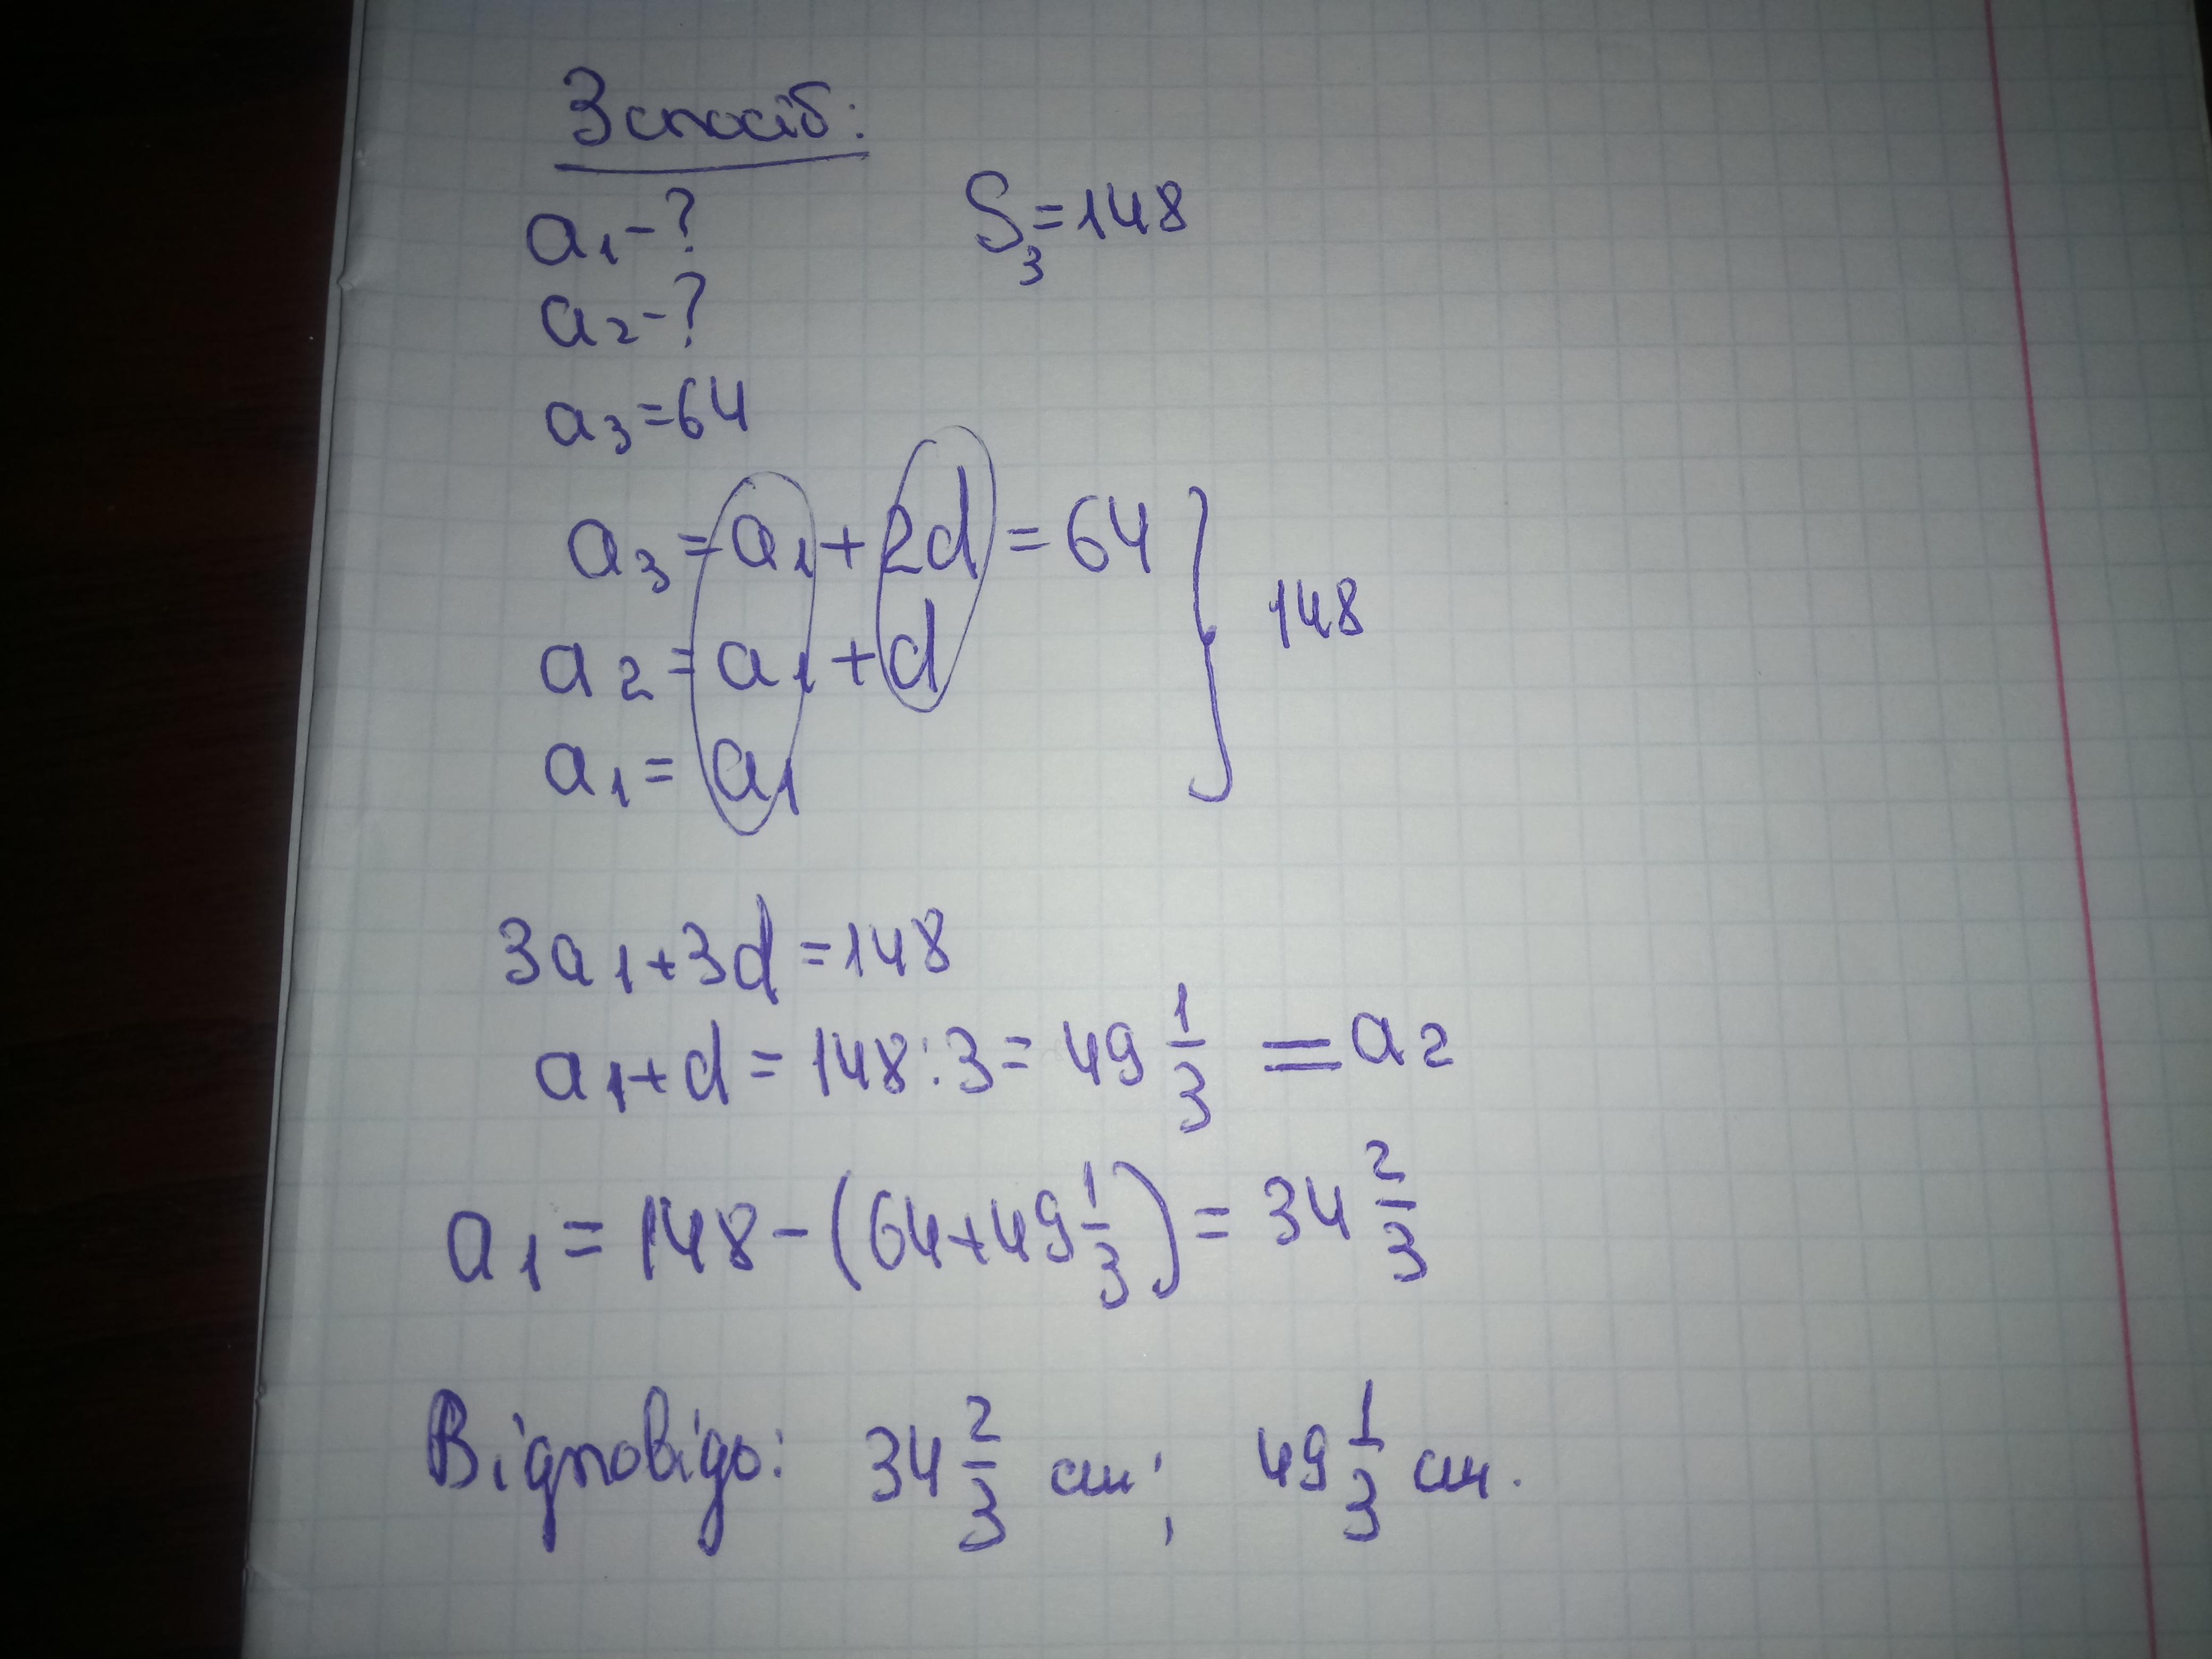 3 спосіб:
a₁-? S₃=148
a₂-?
a₃=64
a₃=a₁+2d=64
148
a₂=a₁+d
a₁=a₁
3a₁+3d=148
a₁+d=148:3=49 1/3 =a₂
a₁=148-(64+49 1/3)=34 2/3
Відповідь: 34 2/3 см; 49 1/3 см.